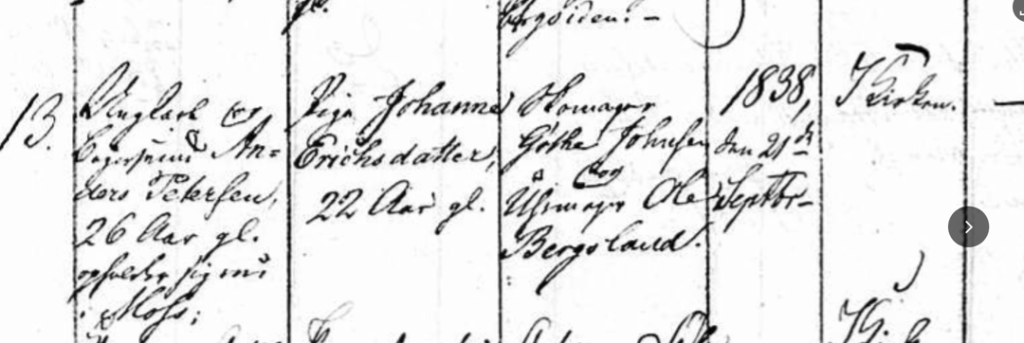 13.
Ungkarl og
Bagersvend An=
ders Petersen,
26 Aar gl.
opholder sig nu
i Moss;
Pige Johanne
Erichsdatter,
22 Aar gl.
Skomager
Gøthe Johnsen
og
Uhrmager Ole
Bergsland.
1838,
den 21de
Septbr
Kirken.